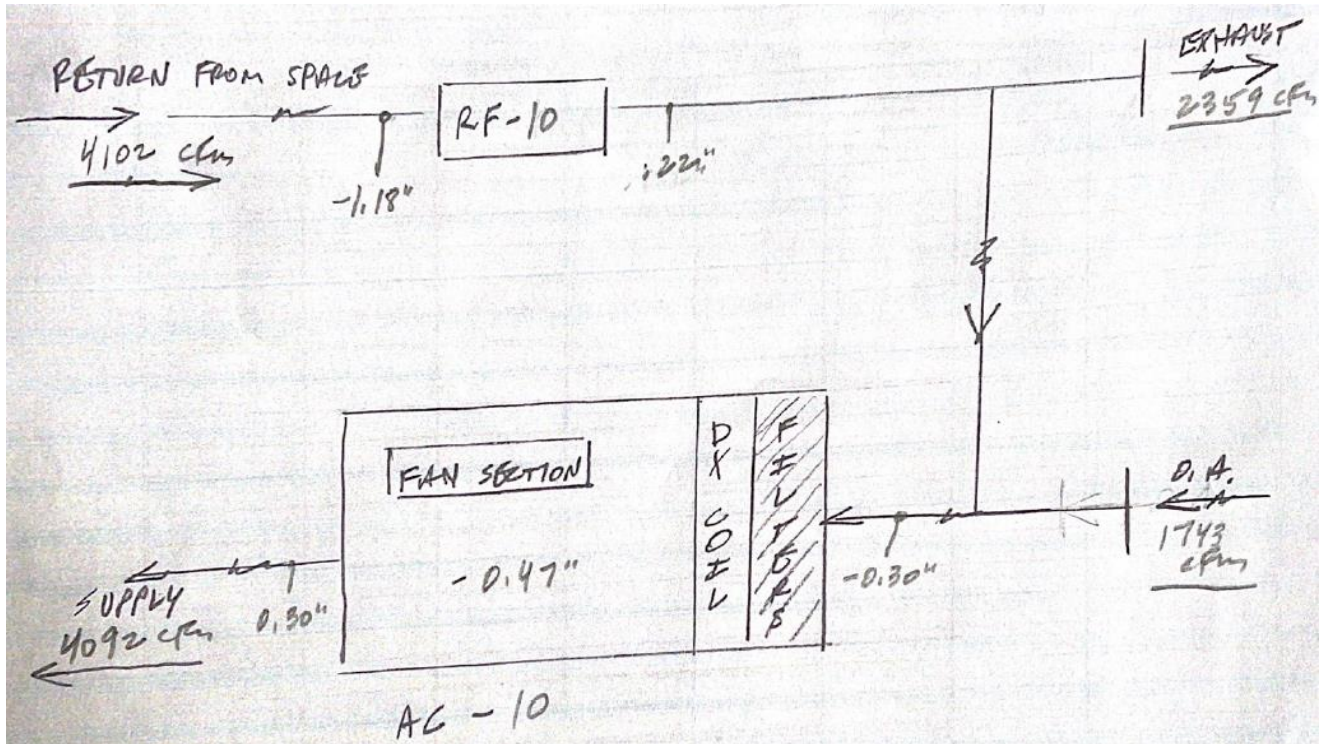 RETURN FROM SPACE
4,102 cfm
-1.18"
RF-10
.22"
EXHAUST
2359 cfm
FAN SECTION
-0.47"
DX COIL
FILTERS
-0.30"
O.A.
1743
cfm
SUPPLY
4092 cfm
0.30"
AC-10